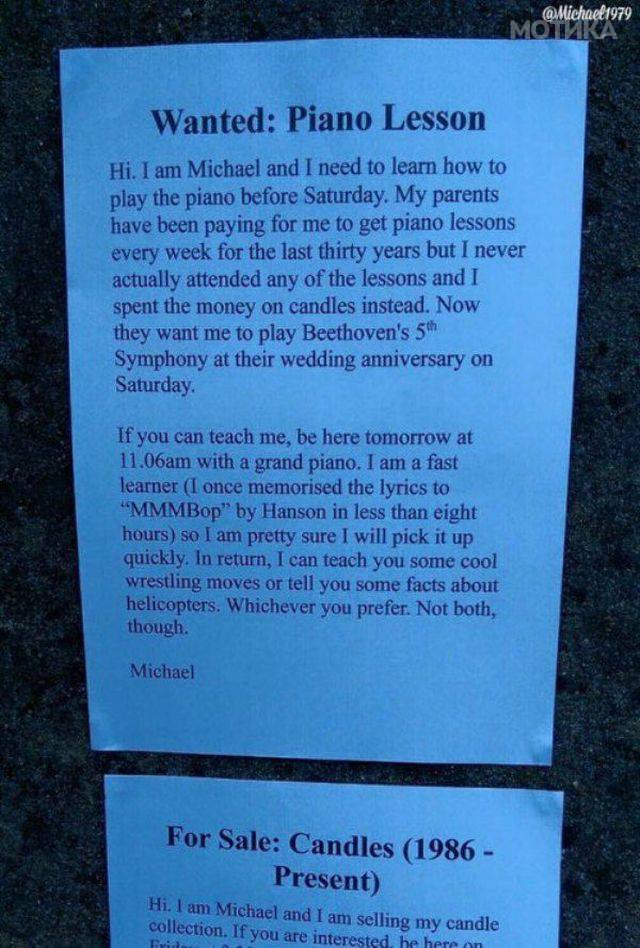 @Michael1979
МОТИКА
Wanted: Piano Lesson
Hi. I am Michael and I need to learn how to
play the piano before Saturday. My parents
have been paying for me to get piano lessons
every week for the last thirty years but I never
actually attended any of the lessons and I
spent the money on candles instead. Now
they want me to play Beethoven's 5th
Symphony at their wedding anniversary on
Saturday.
If you can teach me, be here tomorrow at
11.06am with a grand piano. I am a fast
learner (I once memorised the lyrics to
“MMMBop” by Hanson in less than eight
hours) so I am pretty sure I will pick it up
quickly. In return, I can teach you some cool
wrestling moves or tell you some facts about
helicopters. Whichever you prefer. Not both,
though.
Michael
For Sale: Candles (1986 -
Present)
Hi. I am Michael and I am selling my candle
collection. If you are interested, be here on